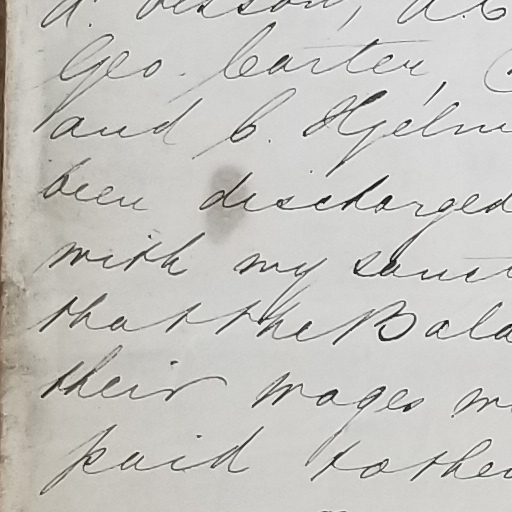 Geo. Carter,
and C. Hjelm
been discharged
with my sanct
that the Bala
their wages
paid to them